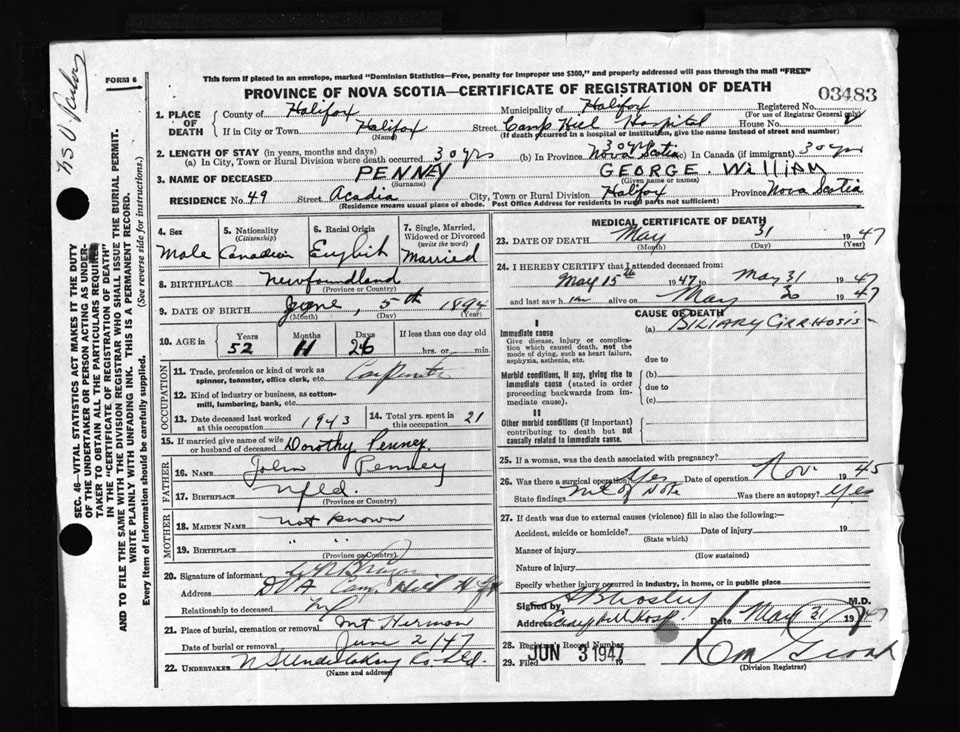 N S V
FORM 6
This form if placed in an envelope, marked "Dominion Statistics—Free, penalty for improper use $300," and properly addressed will pass through the mail "FREE"
PROVINCE OF NOVA SCOTIA—CERTIFICATE OF REGISTRATION OF DEATH
03483
1. PLACE OF DEATH
County of Halifax Municipality of Halifax Registered No.
(For use of Registrar General only)
If in City or Town Halifax (Name) Street Camp Hill Hospital House No.
(If death occurred in a hospital or institution, give the name instead of street and number)
2. LENGTH OF STAY (in years, months and days)
(a) In City, Town or Rural Division where death occurred 30 yrs (b) In Province 30 yrs Nova Scotia (c) In Canada (if immigrant) 30 yrs
3. NAME OF DECEASED PENNEY (Surname) GEORGE. WILLIAM (Given name or names)
RESIDENCE No. 49 Street Acadia City, Town or Rural Division Halifax Province Nova Scotia
(Residence means usual place of abode. Post Office Address for residents in rural parts not sufficient)
4. Sex Male
5. Nationality (Citizenship) Canadian
6. Racial Origin English
7. Single, Married, Widowed or Divorced (write the word) Married
8. BIRTHPLACE Newfoundland
(Province or Country)
9. DATE OF BIRTH June 5th 1894
(Month) (Day) (Year)
10. AGE in Years 52 Months 11 Days 26 If less than one day old hrs. or min.
OCCUPATION
11. Trade, profession or kind of work as spinner, teamster, office clerk, etc. Carpenter
12. Kind of industry or business, as cotton-mill, lumbering, bank, etc.
13. Date deceased last worked at this occupation 1943
14. Total yrs. spent in this occupation 21
15. If married give name of wife or husband of deceased Dorothy Penney
FATHER
16. NAME John Penney
17. BIRTHPLACE Nfld.
(Province or Country)
MOTHER
18. MAIDEN NAME not known
19. BIRTHPLACE " "
(Province or Country)
20. Signature of informant
Address DVA Camp Hill Hfx
Relationship to deceased
21. Place of burial, cremation or removal Mt Hermon
Date of burial or removal June 2/47
22. UNDERTAKER N S Undertaking Co. Ltd.
(Name and address)
MEDICAL CERTIFICATE OF DEATH
23. DATE OF DEATH May 31 1947
(Month) (Day) (Year)
24. I HEREBY CERTIFY that I attended deceased from:
May 15th 1947 to May 31 1947
and last saw h im alive on May 1947
CAUSE OF DEATH
I
Immediate cause
Give disease, injury or complication which caused death, not the mode of dying, such as heart failure, asphyxia, asthenia, etc.
(a) BILIARY CIRRHOSIS—
due to
Morbid conditions, if any, giving rise to immediate cause (stated in order proceeding backwards from immediate cause).
(b)
due to
(c)
II
Other morbid conditions (if important) contributing to death but not causally related to immediate cause.
25. If a woman, was the death associated with pregnancy?
26. Was there a surgical operation Yes Date of operation Nov. 1945
State findings not of Note Was there an autopsy? Yes
27. If death was due to external causes (violence) fill in also the following:—
Accident, suicide or homicide? Date of injury 19
(State which)
Manner of injury
(How sustained)
Nature of injury
Specify whether injury occurred in industry, in home, or in public place
Signed by M.D.
Address Camp Hill Hosp. Date May 31 1947
28. Registrar's Record Number
29. Filed JUN 3 1947
(Division Registrar)
SEC. 46—VITAL STATISTICS ACT MAKES IT THE DUTY
OF THE UNDERTAKER OR PERSON ACTING AS UNDER-
TAKER TO OBTAIN ALL THE PARTICULARS REQUIRED
IN THE "CERTIFICATE OF REGISTRATION OF DEATH"
AND TO FILE THE SAME WITH THE DIVISION REGISTRAR WHO SHALL ISSUE THE BURIAL PERMIT.
WRITE PLAINLY WITH UNFADING INK. THIS IS A PERMANENT RECORD.
Every item of information should be carefully supplied. (See reverse side for instructions.)